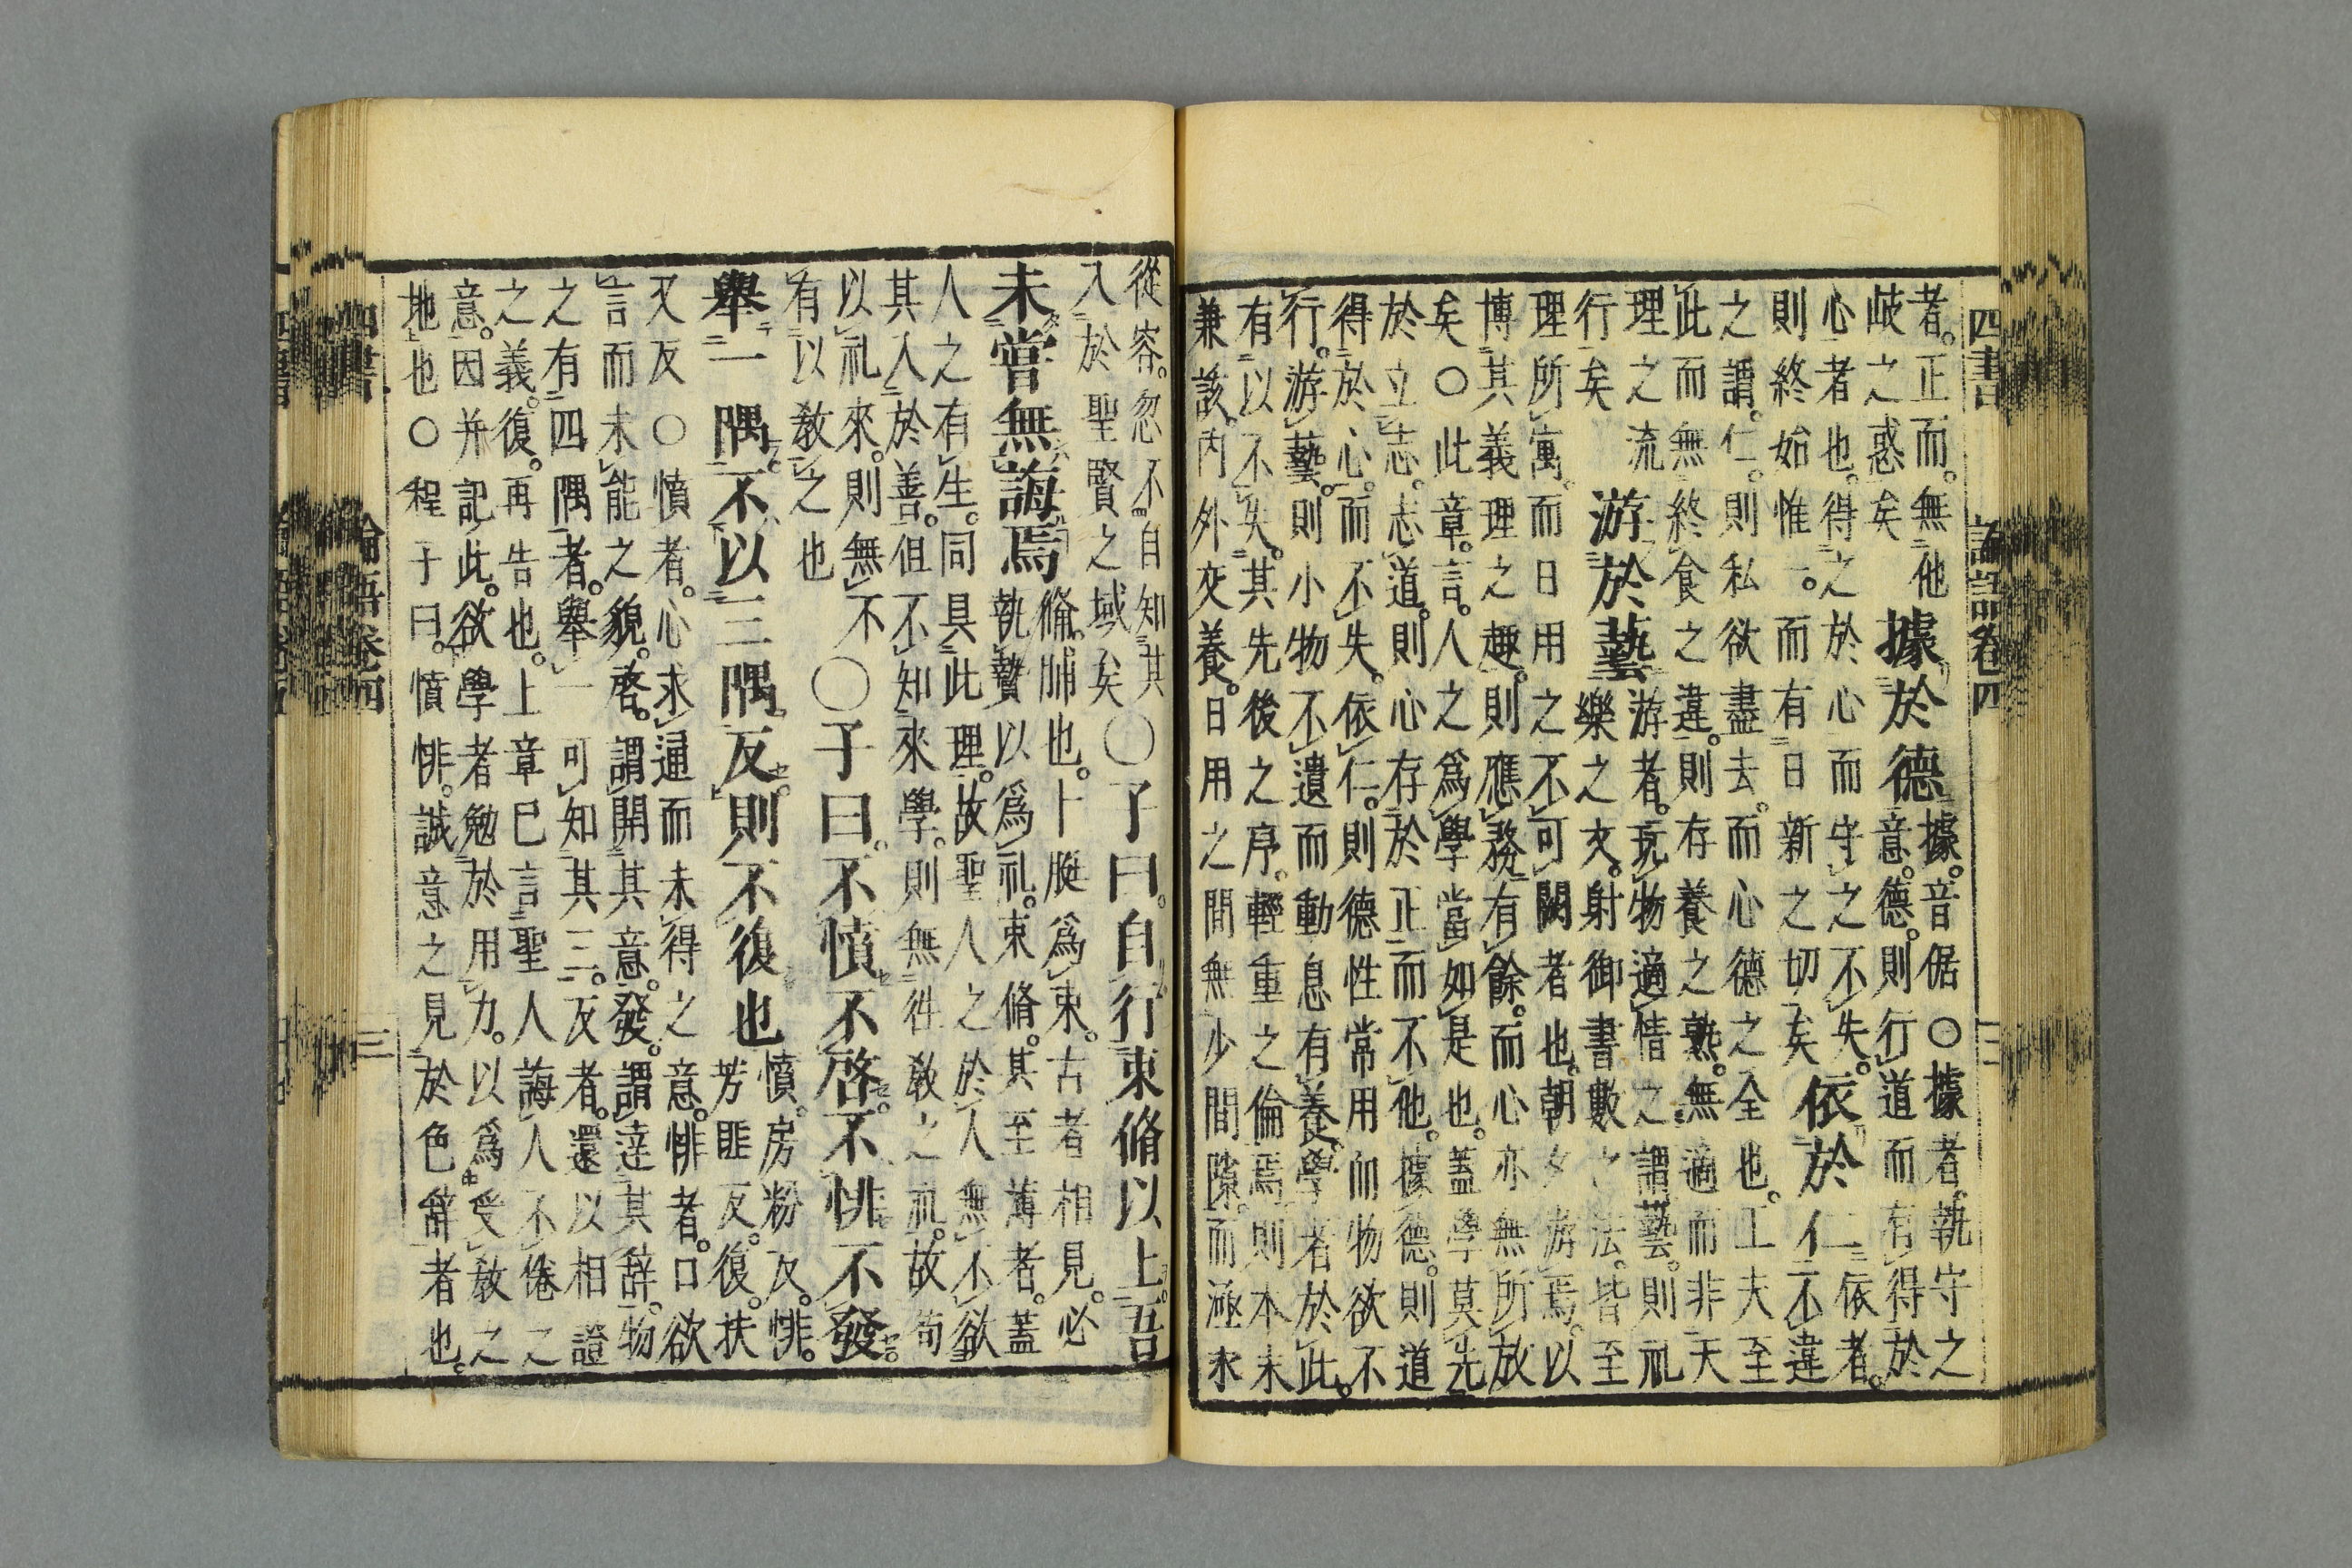 四書 論語卷四 三
者。正而。無他
岐之惑矣
據於德
據。音倨○據者。執守之
意。德。則行道而有得於
心者也。得之於心而守之不失。
則終始惟一。而有日新之切矣
依於仁
依者。
不違
之謂。仁。則私欲盡去。而心德之全也。工夫至
此而無終食之違。則存養之熟。無適而非天
理之流
行矣
游於藝
游者。玩物適情之謂。藝。則礼
樂之文。射御書數之法。皆至
理所寓。而日用之不可闕者也。朝夕游焉。以
博其義理之趣。則應務有餘。而心亦無所放
矣○此章。言。人之爲學當如是也。蓋學莫先
於立志。志道。則心存於正而不他。據德。則道
得於心。而不失。依仁。則德性常用而物欲不
行。游藝。則小物不遺而動息有養。學者於此。
有以不失。其先後之序。輕重之倫焉。則本末
兼該。内外交養。日用之間無少間隙。而涵泳
從容。忽不自知其
入於聖賢之域矣
○子曰。自行束脩以上。吾
未嘗無誨焉
脩。脯也。十脡爲束。古者相見。必
執贄以爲礼。束脩。其至薄者。蓋
人之有生。同具此理。故聖人之於人無不欲
其入於善。但不知來學。則無徃教之礼。故苟
以礼來。則無不
有以教之也
○子曰。不憤不啓。不悱不發。
舉一隅不以三隅反則不復也
憤。房粉反。悱。
芳匪反。復。扶
又反○憤者。心求通而未得之意。悱者。口欲
言而未能之貌。啓。謂開其意。發。謂達其辞。物
之有四隅者。舉一可知其三。反者。還以相證
之義。復。再告也。上章已言聖人誨人不倦之
意。因并記此。欲學者勉於用力。以爲受教之
地也○程子曰。憤悱。誠意之見於色辭者也。
四書 論語卷四 三